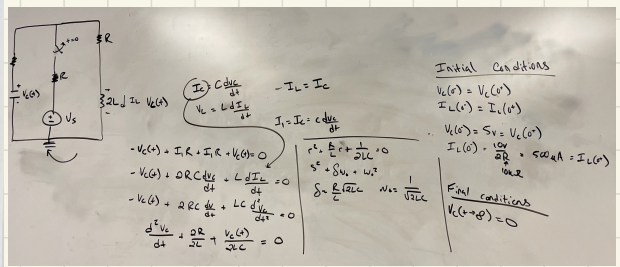 t=0
R
R
Vc(t)
Vs
2L
IL
VL(t)
Ic = C dvc/dt
VL = L dIL/dt
-IL = Ic
I1 = Ic = c dvc/dt
-Vc(t) + I1R + I1R + VL(t) = 0
-Vc(t) + 2RC dvc/dt + L dIL/dt = 0
-Vc(t) + 2RC dv/dt + LC d²Vc/dt² = 0
d²Vc/dt + 2R/2L + Vc(t)/2LC = 0
r² + R/L r + 1/2LC = 0
δ = R/L √2LC
ω0 = 1/√2LC
Initial Conditions
Vc(0⁻) = Vc(0⁺)
IL(0⁻) = IL(0⁺)
Vc(0⁻) = 5v = Vc(0⁺)
IL(0⁻) = 10v/2R = 500uA = IL(0⁺)
10kΩ
Final conditions
Vc(t→∞) = 0